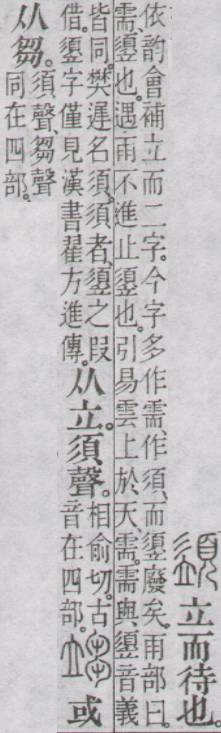 䇓立而待也。
依韵會補立而二字。今字多作需、作須、而䇓廢矣。雨部曰。
需、䇓也。遇雨不進止䇓也。引易雲上於天、需。需與䇓音義
皆同。樊遲名須。須者、䇓之叚
借。䇓字僅見漢書翟方進傳。
从立。須聲。
相俞切。古
音在四部。
或
从芻。
須聲、芻聲
同在四部。